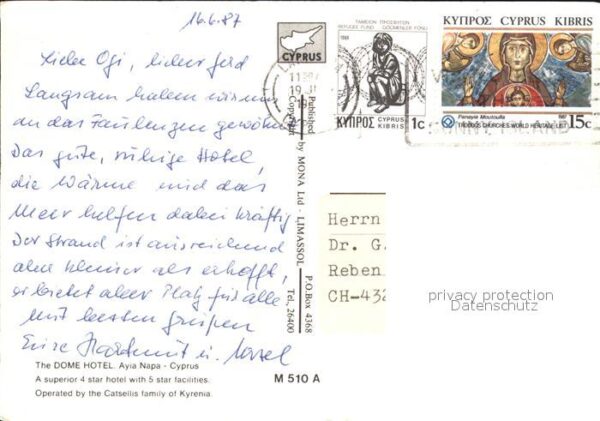 16.6.87
Liebe Ogi, lieber Gerd
Langsam haben wir uns
an das Faulenzen gewöhnt
Das gute, ruhige Hotel,
die Wärme und das
Meer helfen dabei kräftig
Der Strand ist ausreichend
aber kleiner als erhofft,
er bietet aber Platz für alle
Mit besten Grüßen
Eure Hartmut u.
The DOME HOTEL. Ayia Napa - Cyprus
A superior 4 star hotel with 5 star facilities.
Operated by the Catsellis family of Kyrenia.
M 510 A
CYPRUS
Published by MONA Ltd - LIMASSOL P.O.Box 4368
Copyright Tel. 26400
ΤΑΜΕΙΟΝ ΠΡΟΣΦΥΓΩΝ
REFUGEE FUND GÖÇMENLER FONU
1984
ΚΥΠΡΟΣ CYPRUS KIBRIS 1c
ΚΥΠΡΟΣ CYPRUS KIBRIS
Panayia Moutoulla 1987
TROODOS CHURCHES WORLD HERITAGE LIST 15c
Herrn
Dr. G.
Reben
CH-432
privacy protection
Datenschutz